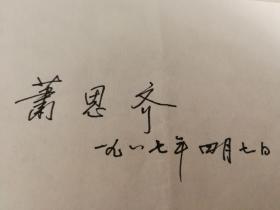 萧恩齐
一九八七年四月七日